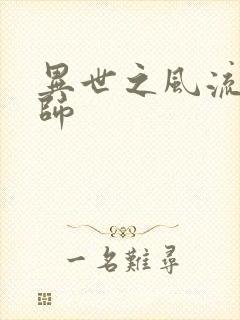 異世之風流
師
一名難尋